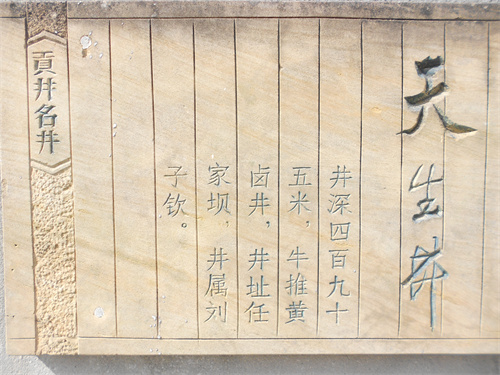 天生井
井深四百九十
五米，牛推黄
卤井，井址任
家坝，井属刘
子钦。
貢井名井